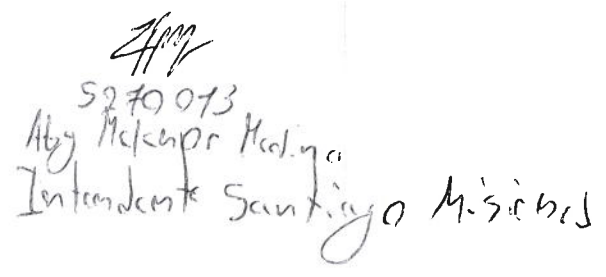 5270013
Abg Melanpr Medina
Intendente Santiago Misiones